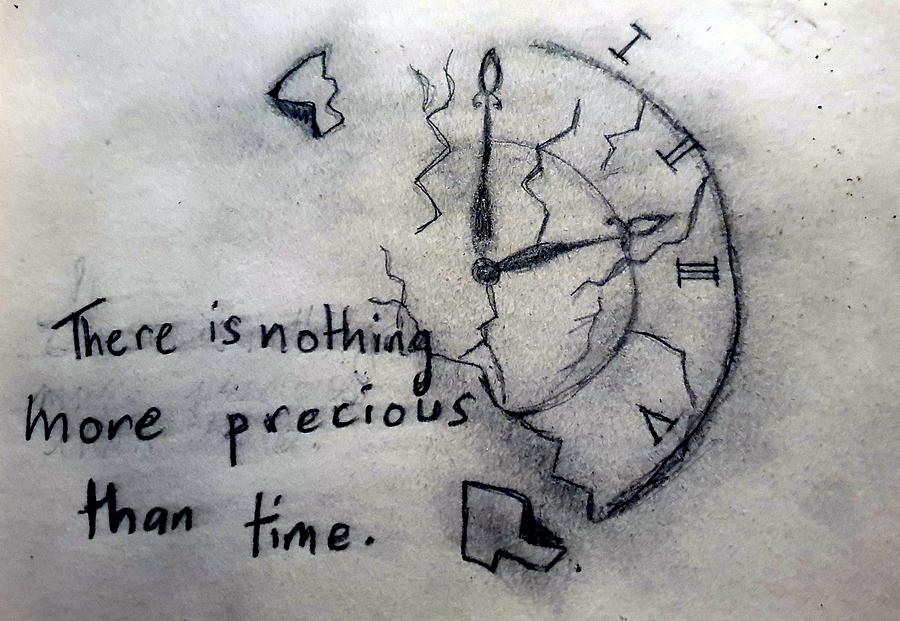 I
II
III
V
There is nothing
more precious
than time.